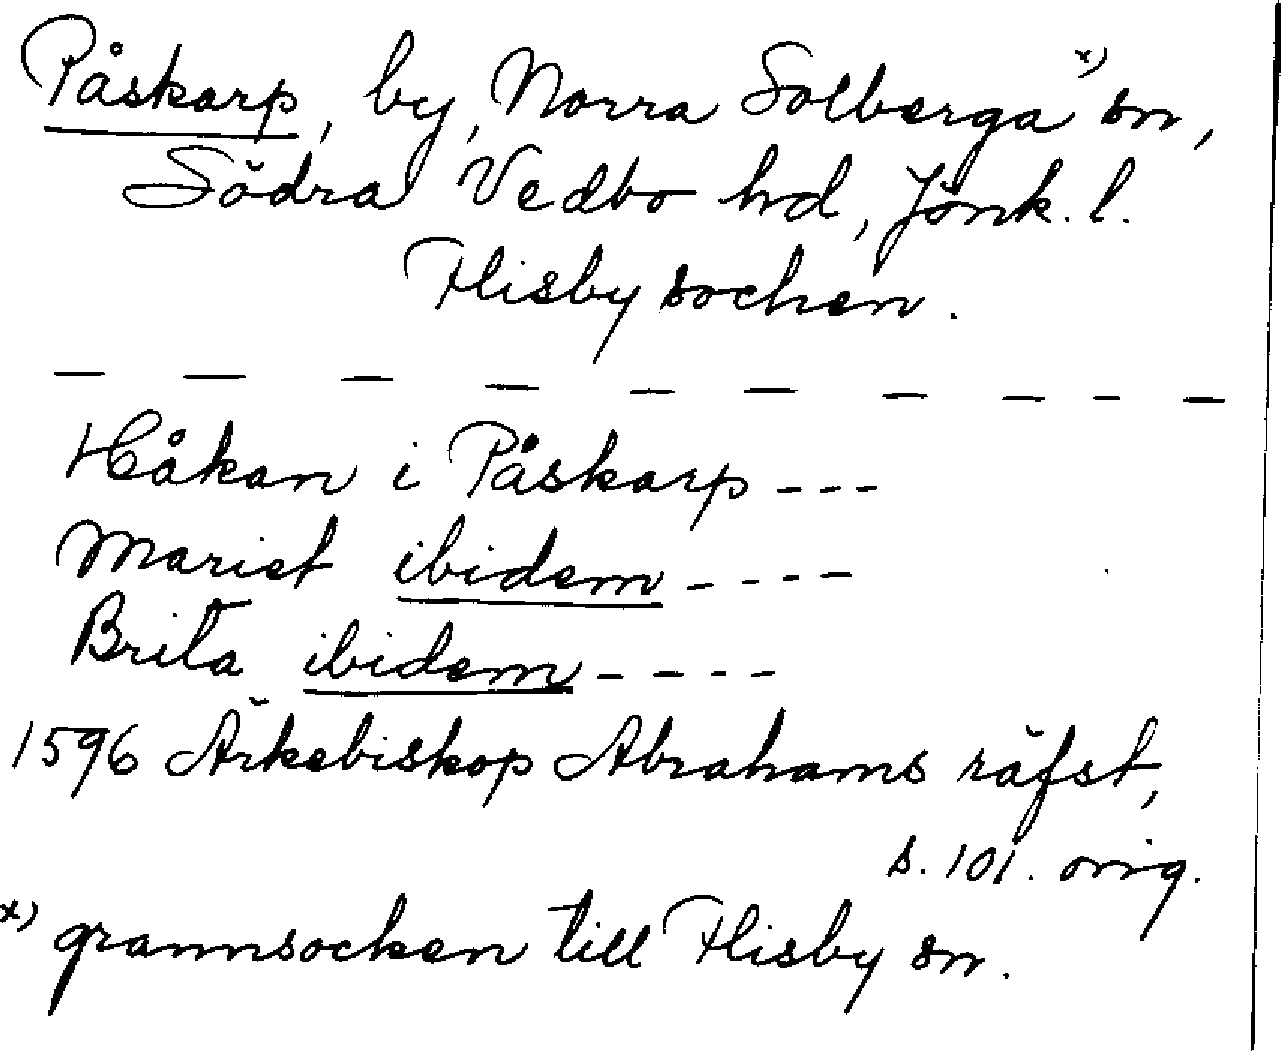 Påskarp, by, Norra Solberga x) sn,
Södra Vedbo hd, Jönk. l.
Flisby sochen.
— — — — — — — — — —
Håkan i Påskarp ---
Mariet ibidem ----
Brita ibidem ----
1596 Ärkebiskop Abrahams räfst,
s. 101. orig.
x) grannsocken till Flisby sn.